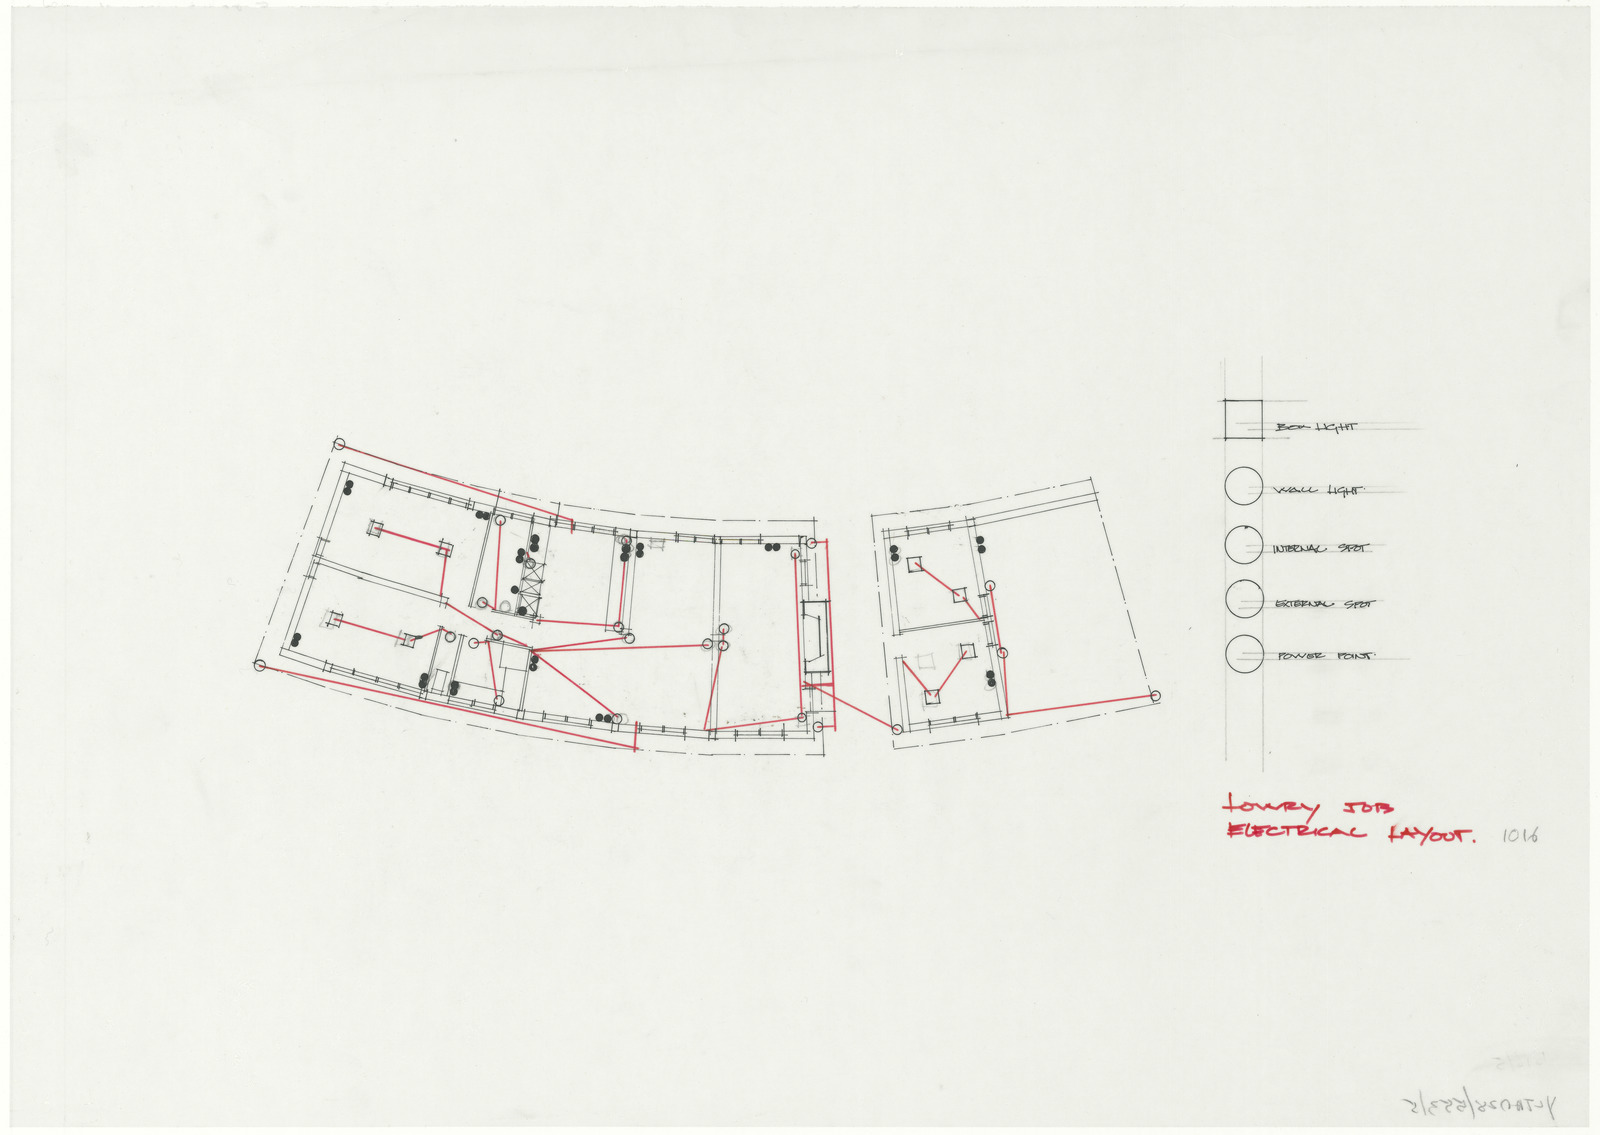 BOX LIGHT
WALL LIGHT.
INTERNAL SPOT
EXTERNAL SPOT
POWER POINT.
LOWRY JOB
ELECTRICAL LAYOUT. 1016